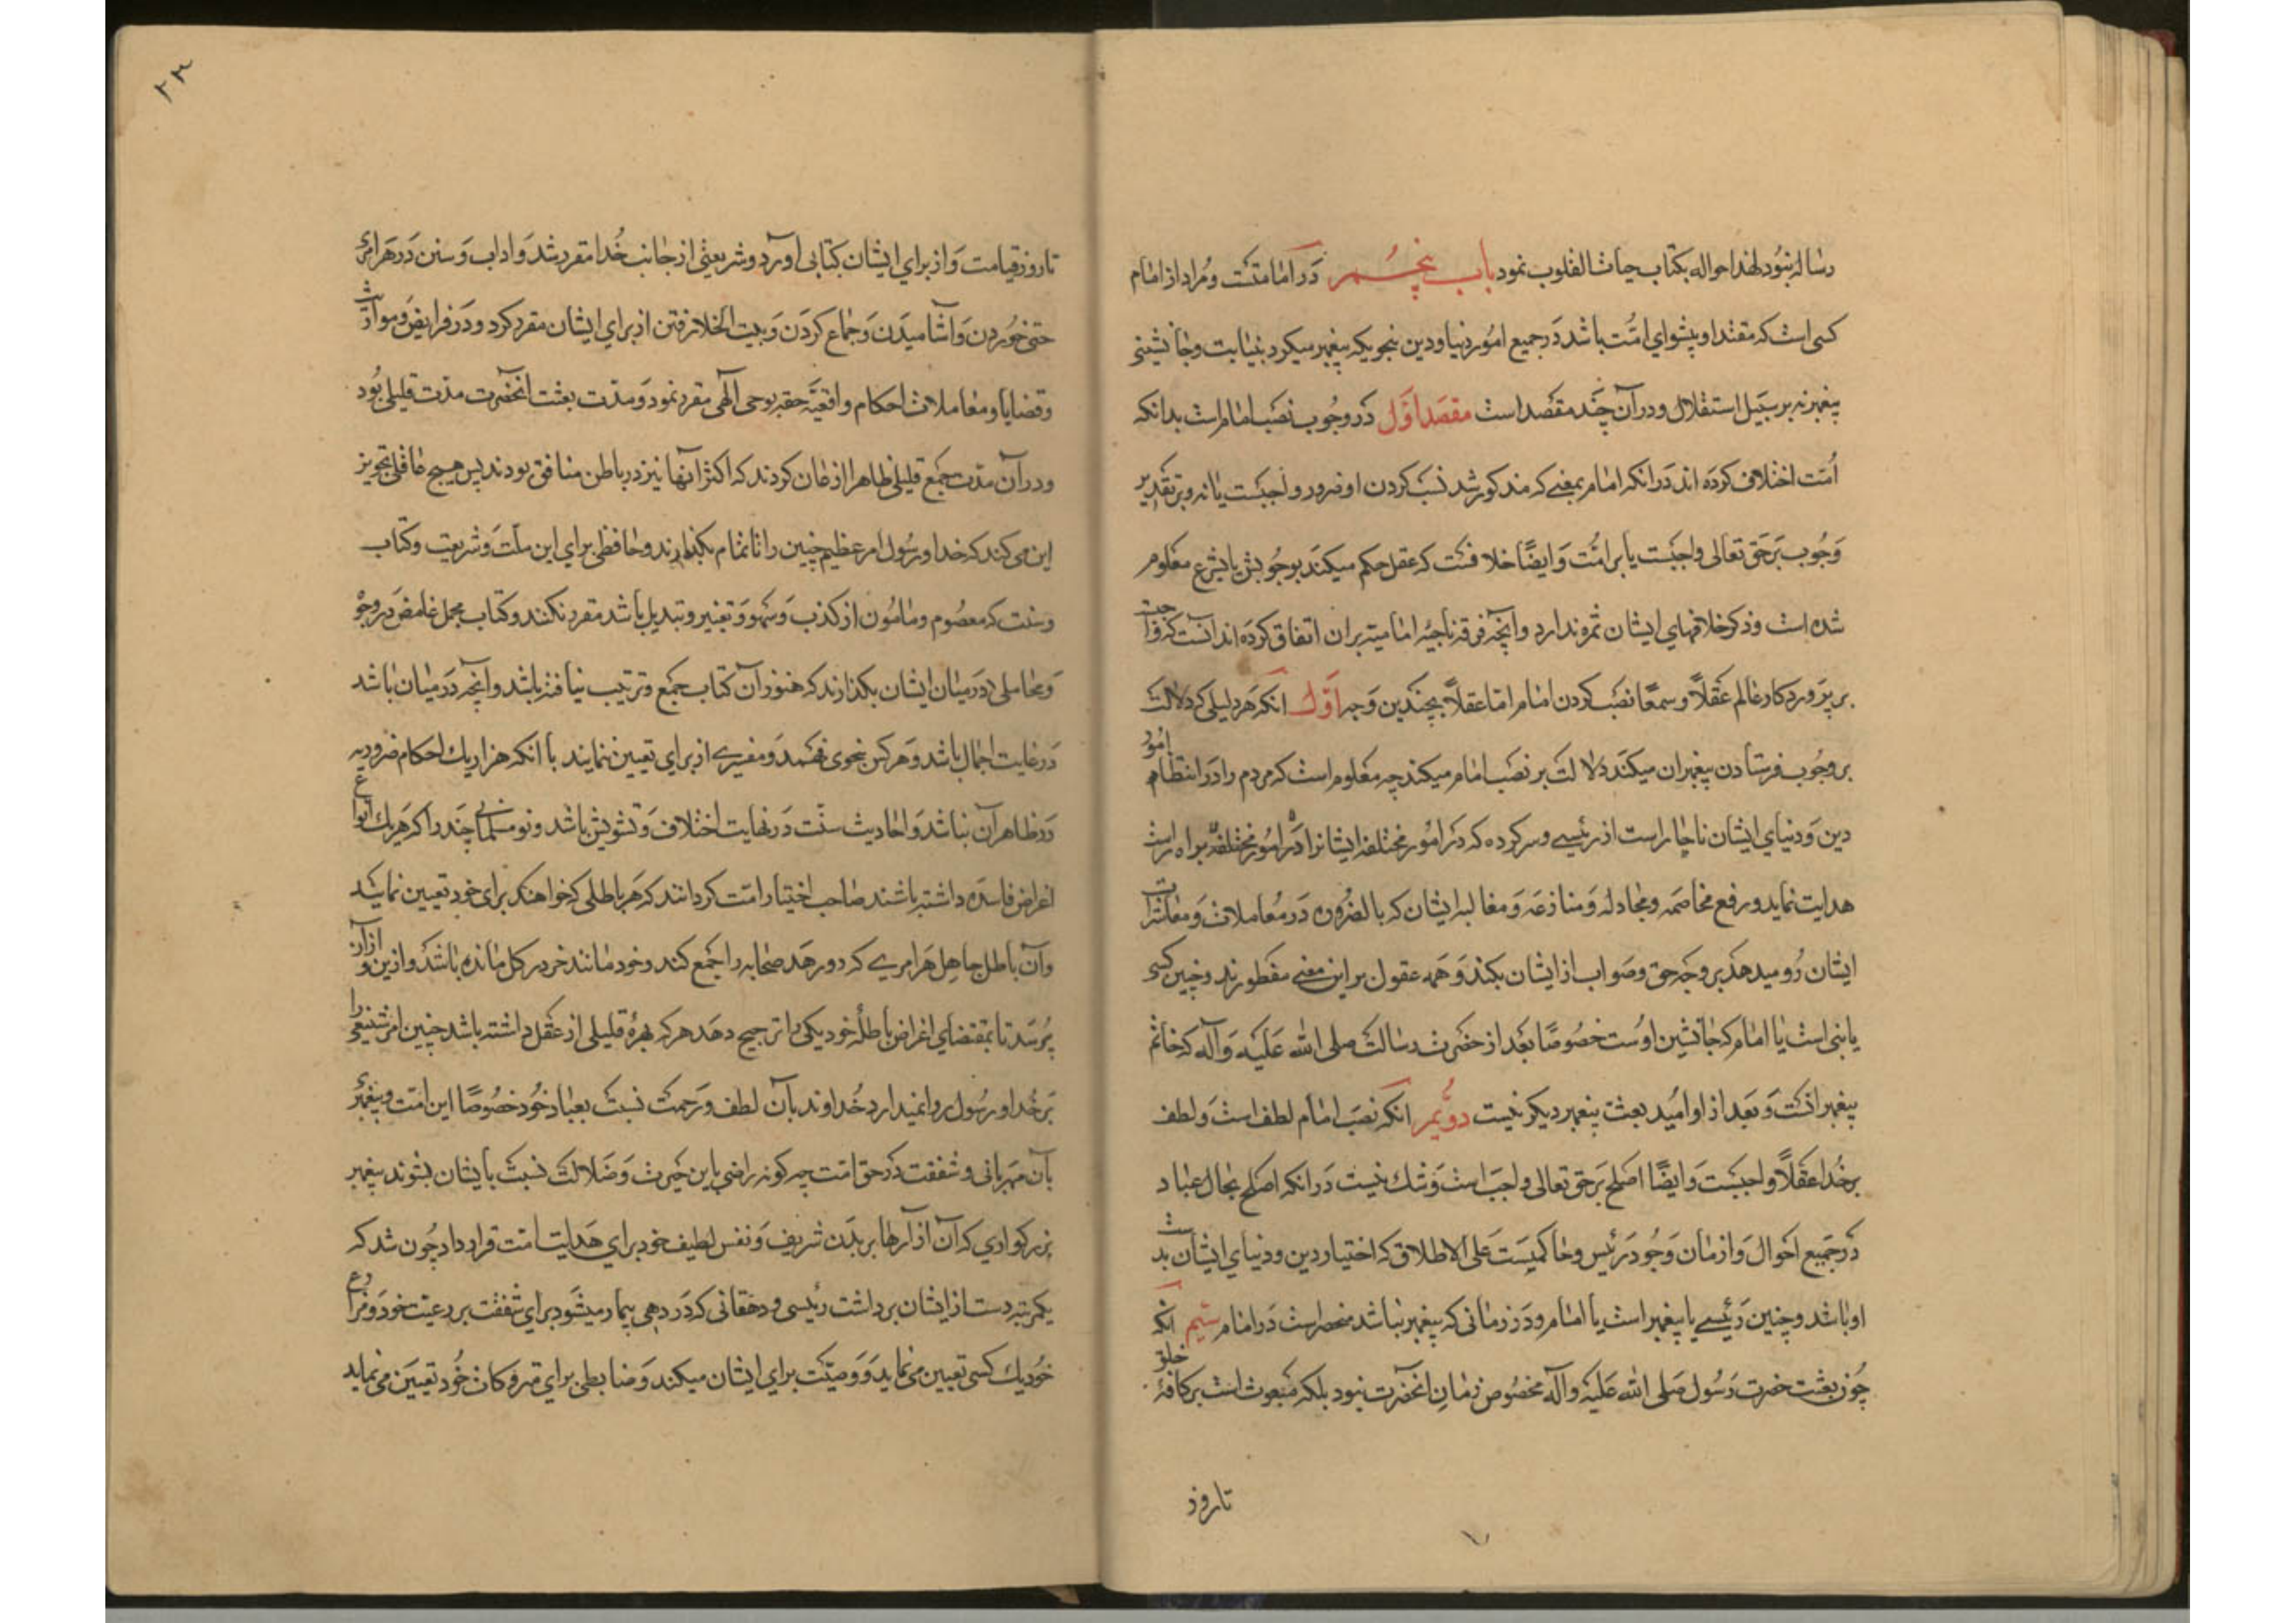 رساله نبود لهذا حواله بکتاب حیاث القلوب نمود باب پنجــم در امامتست و مراد از امام
کسی است که مقتدا و پیشوای امّت باشد در جمیع امور دنیا و دین بنحویکه پیغمبر میکرد بنیابت و جانشینی
پیغمبر نه بر سبیل استقلال و در آن چند مقصد است مقصد اوّل در وجوب نصب امام است بدانکه
اُمّت اختلاف کرده اند در انکه امام بمعنی که مذکور شد نسب کردن او ضرور و واجبست یا نه و بر تقدیر
وجُوب بر حق تعالی واجبست یا بر امّت و ایضًا خلافست که عقل حکم میکند بوجوبش یا بشرع معلوم
شده است و ذکر خلافهای ایشان ثمره ندارد و آنچه فرقه ناجیه امامیته بران اتفاق کرده اند آنست که واجبت
بر پروردکار عالم عقلاً و سمعًا نصب کردن امام اما عقلاً بچندین وجه اوّل انکه هر دلیلی که دلالت
بر وجُوب فرستادن پیغمبران میکند دلالت بر نصب امام میکند چه معلوم است که مردم را در انتظام امور
دین و دنیای ایشان ناچار است از رئیسی و سرکرده که در امور مختلفه ایشانرا در امور مختلفه براه راست
هدایت نماید و رفع مخاصمه و مجادله و منازعه و مغالبه ایشان که بالضروره در معاملات و معاشرات
ایشان رُو میدهد بر وجه حق و صواب از ایشان بکند و همه عقول بر این معنی مفطورند و چنین کسی
یا نبی است یا امام که جانشین اوست خصُوصًا بعد از حضرت رسالت صلی الله علیه و آله که خاتم
پیغمبرانست و بعد از او امید بعثت پیغمبر دیکر نیست دویُم انکه نصب امام لطف است و لطف
بر خُدا عقلاً واجبست و ایضًا اصلح بر حق تعالی واجب است و شک نیست در انکه اصلح بحال عباد
در جمیع احوال و ازمان وجُود رئیس و حاکمیست علی الاطلاق که اختیار دین و دنیای ایشان بدست
او باشد و چنین رئیسی یا پیغمبر است یا امام و در زمانی که پیغمبر نباشد منحصر است در امام سیم انکه
چون بعثت حضرت رسُول صلی الله علیه و آله مخصوص زمان انحضرت نبود بلکه مبعوث است بر کافهٔ خلق
تا روز
تا روز قیامت و از برای ایشان کتابی آورد و شریعتی از جانب خُدا مقرر شد و اداب و سنن در هر امری
حتی خوردن و اشامیدن و جماع کردن و بیت الخلا رفتن از برای ایشان مقرر کرد و در فرایض و مواریث
و قضایا و معاملات احکام واقعیّه حقه بوحی آلهی مقرر نمود و مدت بعثت انحضرت مدت قلیلی بُود
و در آن مدت جمع قلیلی ظاهرا اذعان کردند که اکثر آنها نیز در باطن منافق بودند پس هیچ عاقلی تجویز
این می کند که خدا و رسُول امر عظیم چنین را ناتمام بگذارند و حافظی برای این ملّت و شریعت و کتاب
و سنت که معصُوم و مامُون از کذب و سهو و تغییر و تبدیل باشد مقرر نکنند و کتاب مجمل غامض در وجوْ
و محاملی در میان ایشان بکذارند که هنوز آن کتاب جمع و ترتیب نیافته باشد و آنچه در میان باشد
در غایت اجمال باشد و هر کس بنحوی فهمد و مفسری از برای تعیین ننمایند با انکه هزار یک احکام ضروریه
در ظاهر آن نباشد و احادیث سنّت در نهایت اختلاف و تشویش باشد و نو مسلمانی چند را که هر یک انواع
اغراض فاسده داشته باشند صاحب اختیار امت کردانند که هر باطلی که خواهند برای خود تعیین نمایند
و آن باطل جاهل هر امری که رو دهد صحابه را جمع کند و خود مانند خر در کل مانده باشد و ازین و ازآن
پُرسد تا بمقتضای اغراض باطلهٔ خود یکی را ترجیح دهد هر که بهرهٔ قلیلی از عقل داشته باشد چنین امر شنیعی را
بر خُدا و رسُول روا نمیدارد خُداوند بآن لطف و رحمت نسبت بعباد خُود خصُوصًا این امت و پیغمبر
بآن مهربانی و شفقت در حق امت چه کونه راضی باین حیرت و ضلالت نسبت بایشان بشوند پیغمبر
بزرکواری که آن ازآرها بر بدن شریف و نفس لطیف خود برای هدایت امت قرار داد چون شد که
یکمرتبه دست از ایشان برداشت رئیسی و دهقانی که در دهی بیمار میشود برای شفقت بر رعیت خود و مزارع
خود یک کسی تعیین می نماید و وصیّت برای ایشان میکند و ضابطی برای متروکات خُود تعیین می نماید